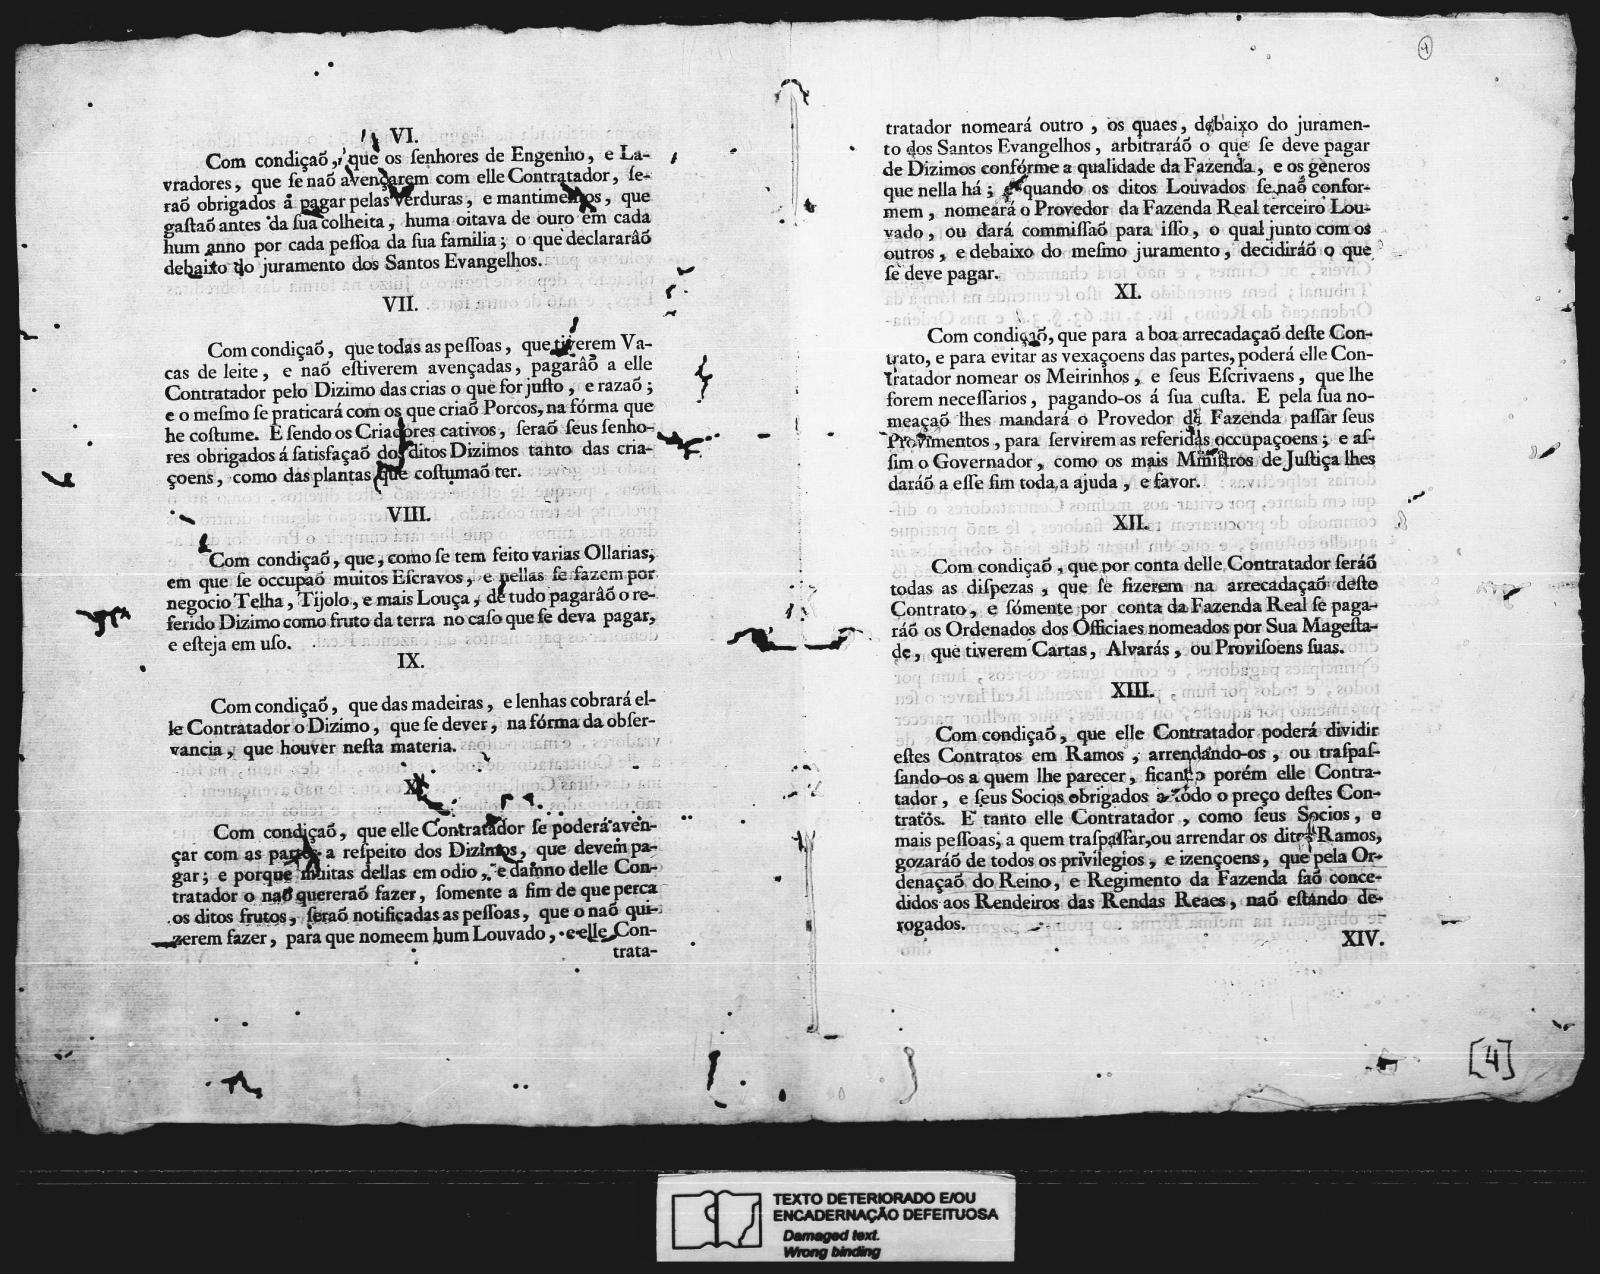 VI.
Com condiçaõ, que os ſenhores de Engenho, e La-
vradores, que ſe naõ avençarem com elle Contratador, ſe-
raõ obrigados á pagar pelas verduras, e mantimentos, que
gaſtaõ antes da ſua colheita, huma oitava de ouro em cada
hum anno por cada peſſoa da ſua familia; o que declararâõ
debaixo do juramento dos Santos Evangelhos.
VII.
Com condiçaõ, que todas as peſſoas, que tiverem Va-
cas de leite, e naõ eſtiverem avençadas, pagarâõ a elle
Contratador pelo Dizimo das crias o que for juſto, e razaõ;
e o meſmo ſe praticará com os que criaõ Porcos, na fórma que
he coſtume. E ſendo os Criadores cativos, ſeraõ ſeus ſenho-
res obrigados á ſatisfaçaõ dos ditos Dizimos tanto das cria-
çoens, como das plantas que coſtumaõ ter.
VIII.
Com condiçaõ, que, como ſe tem feito varias Ollarias,
em que ſe occupaõ muitos Eſcravos, e nellas ſe fazem por
negocio Telha, Tijolo, e mais Louça, de tudo pagarâõ o re-
ferido Dizimo como fruto da terra no caſo que ſe deva pagar,
e eſteja em uſo.
IX.
Com condiçaõ, que das madeiras, e lenhas cobrará el-
le Contratador o Dizimo, que ſe dever, na fórma da obſer-
vancia, que houver neſta materia.
X.
Com condiçaõ, que elle Contratador ſe poderá aven-
çar com as partes a reſpeito dos Dizimos, que devem pa-
gar; e porque muitas dellas em odio, e damno delle Con-
tratador o naõ quereraõ fazer, ſomente a fim de que perca
os ditos frutos, ſeraõ notificadas as peſſoas, que o naõ qui-
zerem fazer, para que nomeem hum Louvado, e elle Con-
trata-
4
tratador nomeará outro, os quaes, debaixo do juramen-
to dos Santos Evangelhos, arbitraráõ o que ſe deve pagar
de Dizimos confórme a qualidade da Fazenda, e os generos
que nella há; e quando os ditos Louvados ſe naõ confor-
mem, nomeará o Provedor da Fazenda Real terceiro Lou-
vado, ou dará commiſſaõ para iſſo, o qual junto com os
outros, e debaixo do meſmo juramento, decidiráõ o que
ſe deve pagar.
XI.
Com condiçaõ, que para a boa arrecadaçaõ deſte Con-
trato, e para evitar as vexaçoens das partes, poderá elle Con-
tratador nomear os Meirinhos, e ſeus Eſcrivaens, que lhe
forem neceſſarios, pagando-os á ſua cuſta. E pela ſua no-
meaçaõ lhes mandará o Provedor da Fazenda paſſar ſeus
Provimentos, para ſervirem as referidas occupaçoens; e aſ-
ſim o Governador, como os mais Miniſtros de Juſtiça lhes
daráõ a eſſe fim toda a ajuda, e favor.
XII.
Com condiçaõ, que por conta delle Contratador ſeráõ
todas as diſpezas, que ſe fizerem na arrecadaçaõ deſte
Contrato, e ſómente por conta da Fazenda Real ſe paga-
ráõ os Ordenados dos Officiaes nomeados por Sua Mageſta-
de, que tiverem Cartas, Alvarás, ou Proviſoens ſuas.
XIII.
Com condiçaõ, que elle Contratador poderá dividir
eſtes Contratos em Ramos, arrendando-os, ou traſpaſ-
ſando-os a quem lhe parecer, ficando porém elle Contra-
tador, e ſeus Socios obrigados a todo o preço deſtes Con-
tratos. E tanto elle Contratador, como ſeus Socios, e
mais peſſoas, a quem traſpaſſar, ou arrendar os ditos Ramos,
gozaráõ de todos os privilegios, e izençoens, que pela Or-
denaçaõ do Reino, e Regimento da Fazenda ſaõ conce-
didos aos Rendeiros das Rendas Reaes, naõ eſtando de-
rogados.
XIV.
[4]
TEXTO DETERIORADO E/OU
ENCADERNAÇÃO DEFEITUOSA
Damaged text.
Wrong binding